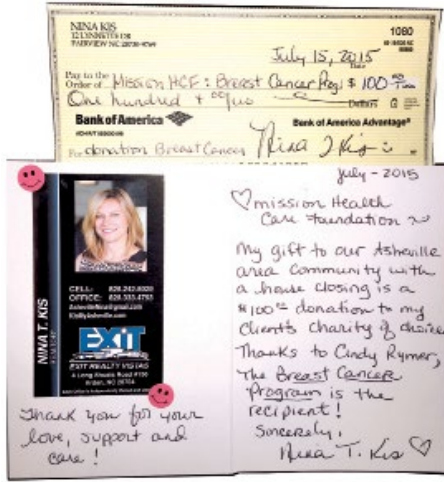 NINA KIS
FAIRVIEW NC
1080
July 15, 2015
Date
Pay to the
Order of Mission HCF : Breast Cancer Prog $ 100
One hundred + Dollars
Bank of America
Bank of America Advantage®
For donation Breast Cancer Nina T Kis
NINA T. KIS
CELL:
OFFICE:
EXIT
EXIT REALTY VISTAS
A Long Shoals Road
Arden, NC 28704
Thank you for your
love, support and
care !
July - 2015
♡ mission Health
Care Foundation
My gift to our Asheville
area Community with
a house closing is a
$100 donation to my
client's charity of choice.
Thanks to Cindy Rymer,
the Breast Cancer
Program is the
recipient!
Sincerely,
Nina T. Kis ♡